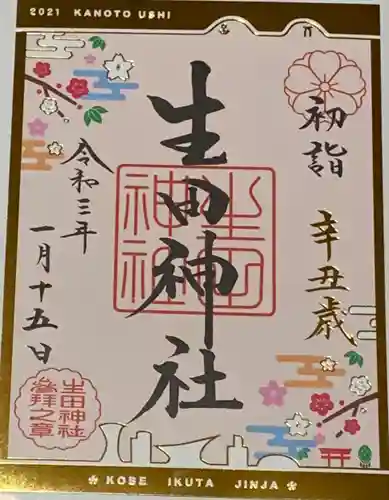 2021 KANOTO USHI
初詣
辛丑歳
生田神社
生田
神社
令和三年
一月十五日
生田神社
参拝之章
KOBE IKUTA JINJA